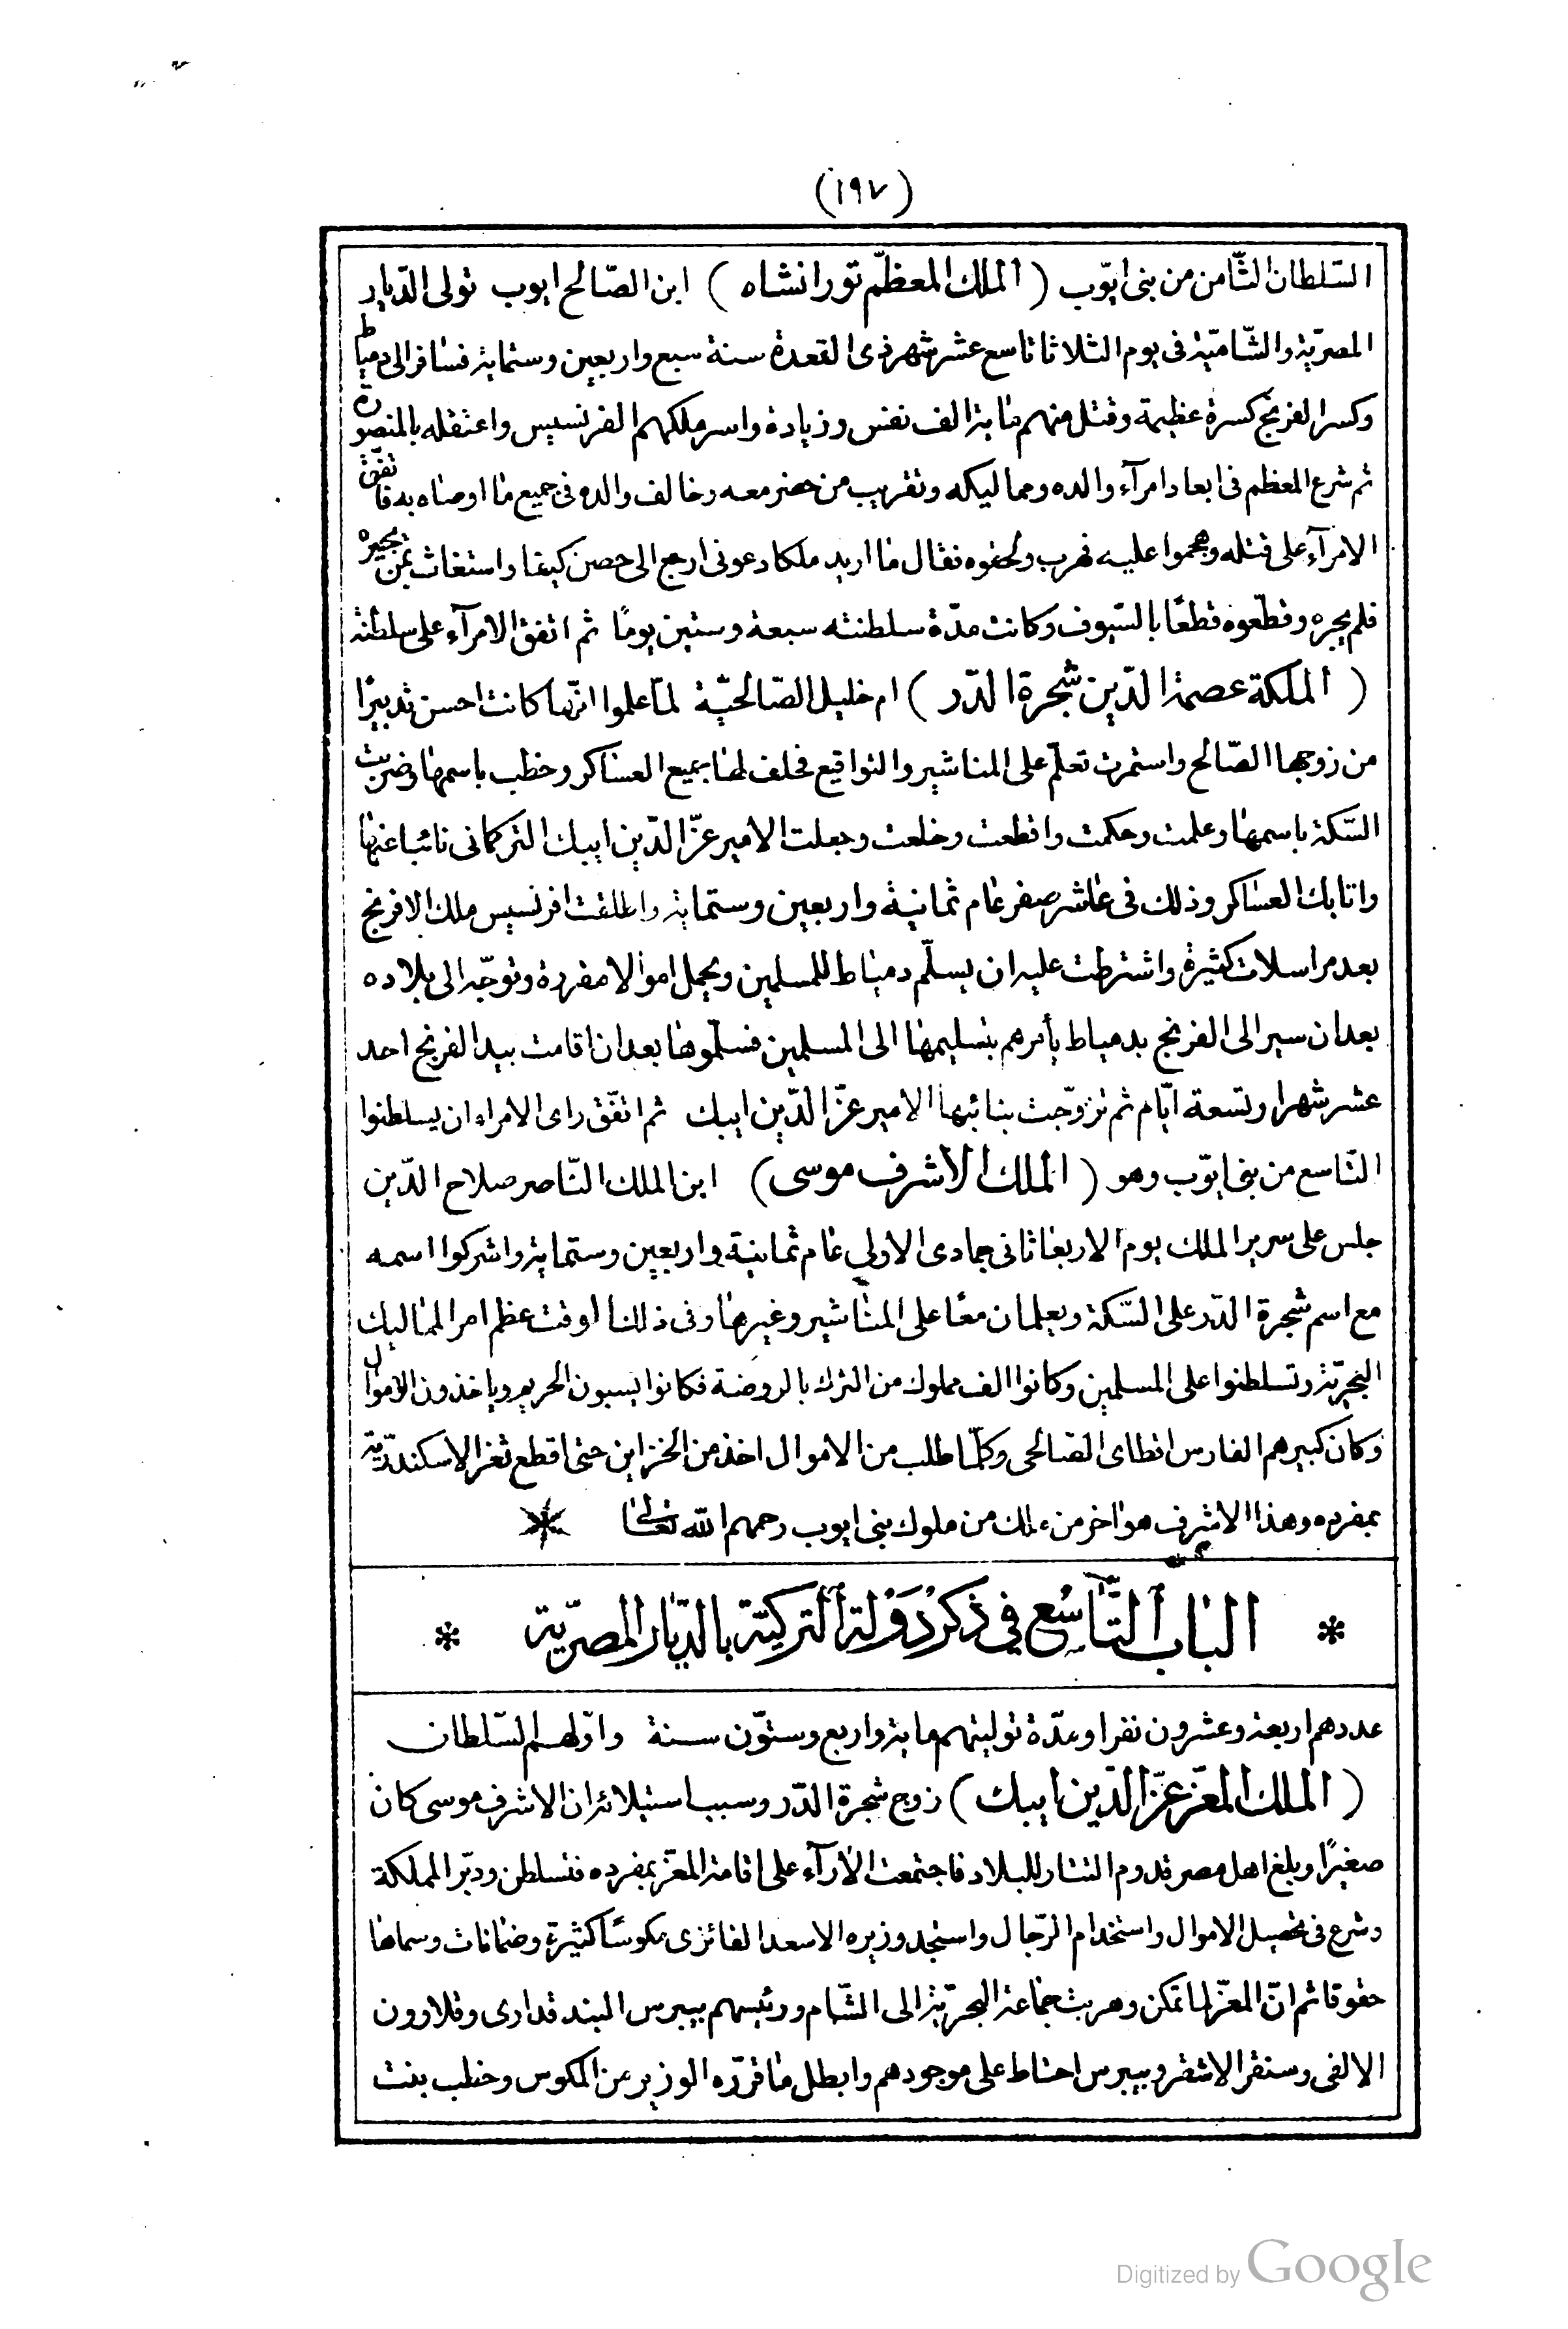 (١٩٧)
السّلطان الثّامن من بنى ايّوب ( الملك المعظّم تورانشاه ) ابن الصّالح ايوب تولى الدّيار
المصريّة والشّاميّة فى يوم الثلاثا تاسع عشر شهر ذى القعدة سنة سبع واربعين وستماية فسافر الى دمياط
وكسر الفرنج كسرة عظيمة وقتل منهم ماية الف نفس وزيادة واسر ملكهم الفرنسيس واعتقله بالمنصورة
ثم شرع المعظم فى ابعاد امرآء والده ومماليكه وتقريب من حضر معه وخالف والده فى جميع ما اوصاه به فاتفق
الامرآء على قتله وهجموا عليه فهرب ولحقوه فقال ما اريد ملكا دعونى ارجع الى حصن كيفا واستغاث بمن يجيره
فلم يجره وقطّعوه قطعًا بالسّيوف وكانت مدّة سلطنته سبعة وستين يومًا ثم اتفق الامرآء على سلطنة
( الملكة عصمة الدّين شجرة الدّر ) ام خليل الصّالحيّة لمّا علموا انّها كانت احسن تدبيرًا
من زوجها الصّالح واستمرت تعلّم على المناشير والتواقيع فحلف لها جميع العساكر وخطب باسمها وضربت
السّكة باسمها وعلمت وحكمت واقطعت وخلعت وجعلت الامير عزّ الدّين ايبك التركمانى نائبا عنها
واتابك العساكر وذلك فى عاشر صفر عام ثمانية واربعين وستماية واطلقت افرنسيس ملك الافرنج
بعد مراسلات كثيرة واشترطت عليه ان يسلّم دمياط للمسلمين ويحمل اموالا مفردة وتوجّه الى بلاده
بعد ان سير الى الفرنج بدمياط يأمرهم بتسليمها الى المسلمين فسلّموها بعد ان اقامت بيد الفرنج احد
عشر شهرا وتسعة ايّام ثم تزوّجت بنائبها الامير عزّ الدّين ايبك ثم اتفّق راى الامراء ان يسلطنوا
التّاسع من بنى ايّوب وهو ( الملك الاشرف موسى ) ابن الملك النّاصر صلاح الدّين
جلس على سرير الملك يوم الاربعا ثانى جمادى الاولى عام ثمانية واربعين وستماية واشركوا اسمه
مع اسم شجرة الدّر على السّكة ويعلمان معًا على المناشير وغيرها وفى ذلك الوقت عظم امر المماليك
البحريّة وتسلطنوا على المسلمين وكانوا الف مملوك من الترك بالروضة فكانوا يسبون الحريم وياخذون الاموال
وكان كبيرهم الفارس اقطاى الصالحى وكلّما طلب من الاموال اخذ من الخزاين حتى اقطع ثغر الاسكندريّة
بمفرده وهذا الاشرف هو اخر من ملك من ملوك بنى ايوب رحمهم الله تعالى *
* الباب التّاسع في ذكر دولة التركيّة بالدّيار المصريّة *
عددهم اربعة وعشرون نفرا ومدّة توليتهم ماية واربع وستّون سنة واوّلهم السّلطان
( الملك المعزّ عزّ الدّين ايبك ) زوج شجرة الدّر وسبب استيلائه ان الاشرف موسى كان
صغيرًا وبلغ اهل مصر قدوم التتار للبلاد فاجتمعت الآرآء على اقامة المعزّ بمفرده فتسلطن ودبّر المملكة
وشرع فى تحصيل الاموال واستخدام الرّجال واستجد وزيره الاسعد الفائزى مكوسًا كثيرة وضمانات وسماها
حقوقا ثم انّ المعزّ لما تمكن وهربت جماعة البحريّة الى الشّام ورئيسهم بيبرس البندقدارى وقلاوون
الالفى وسنقر الاشقر وبيبرس احتاط على موجودهم وابطل ما قرّره الوزير من المكوس وخطب بنت
Digitized by Google